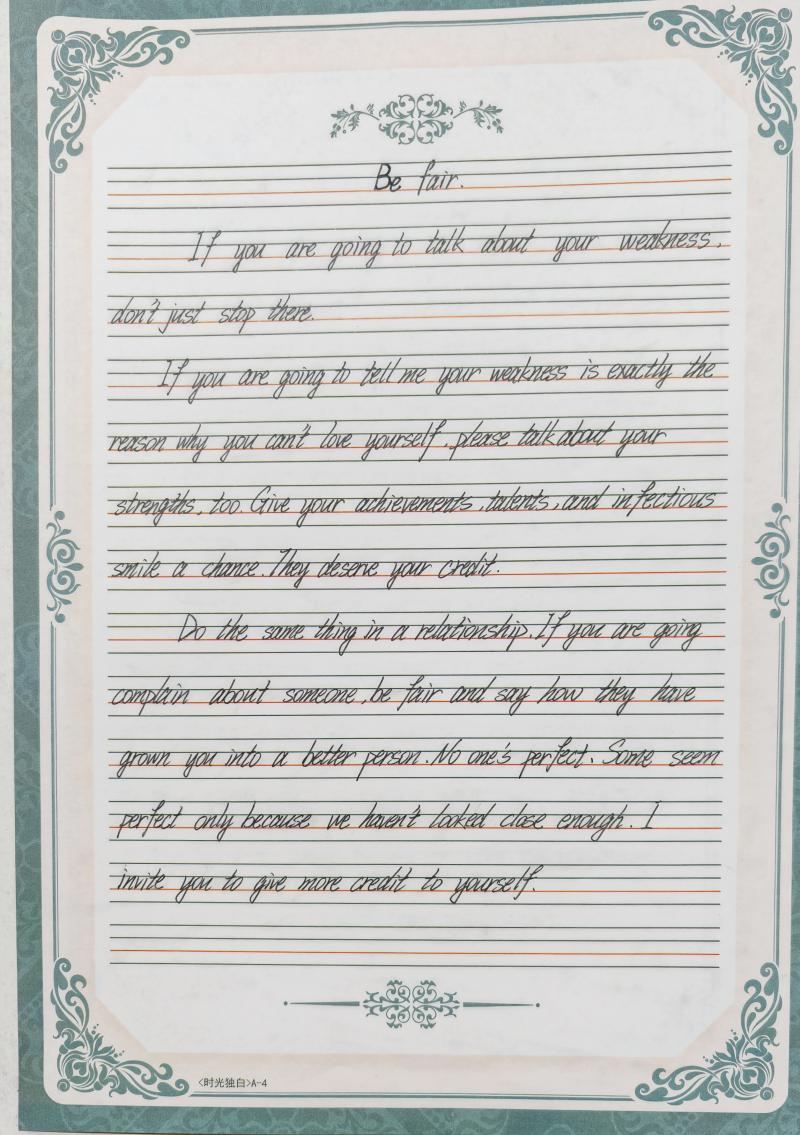 Be fair.
If you are going to talk about your weakness,
don't just stop there.
If you are going to tell me your weakness is exactly the
reason why you can't love yourself, please talk about your
strengths, too. Give your achievements, talents, and infectious
smile a chance. They deserve your credit.
Do the same thing in a relationship. If you are going
complain about someone, be fair and say how they have
grown you into a better person. No one's perfect. Some seem
perfect only because we haven't looked close enough. I
invite you to give more credit to yourself.
<时光独白>A-4